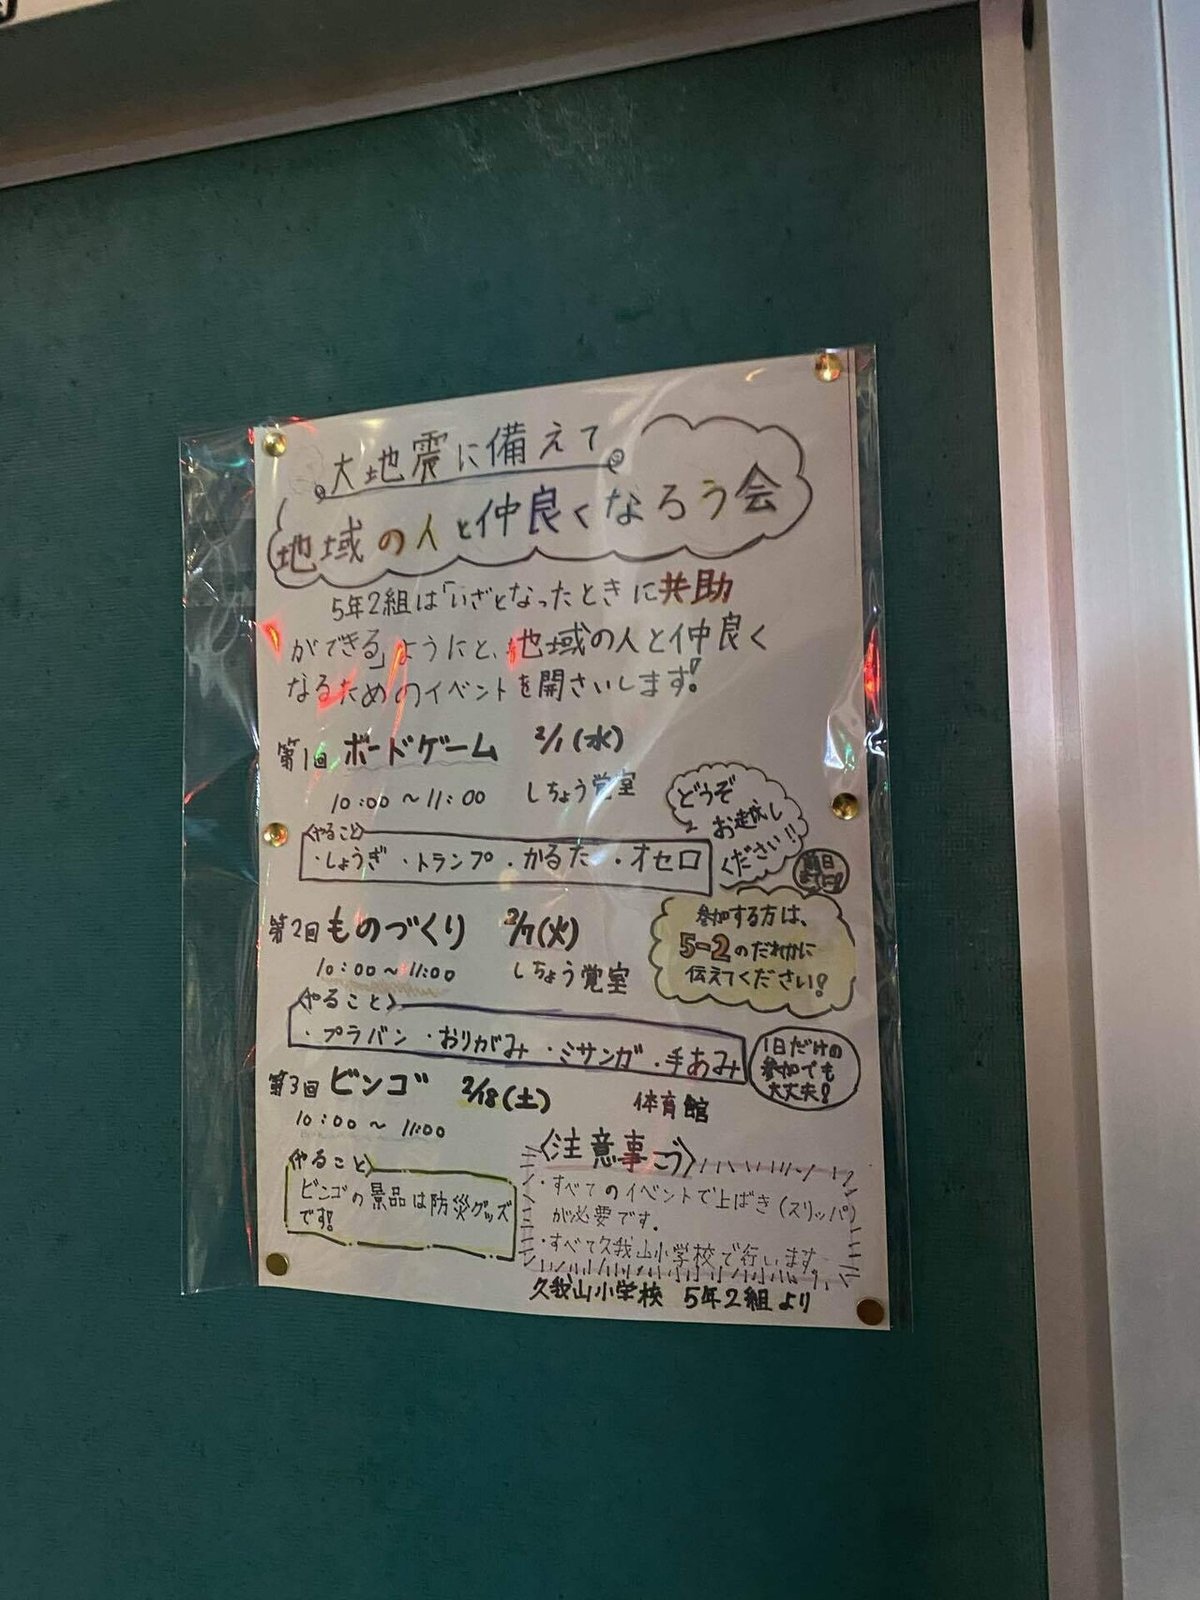 大地震に備えて
地域の人と仲良くなろう会
5年2組は「いざとなったときに共助
ができる」ようにと、地域の人と仲良く
なるためのイベントを開さいします!
第1回 ボードゲーム 2/1(水)
10:00~11:00 しちょう覚室
どうぞ
お越し
ください!!
<やること>
・しょうぎ ・トランプ ・かるた ・オセロ
前日
までに!
第2回 ものづくり 2/7(火)
10:00~11:00 しちょう覚室
参加する方は、
5-2のだれかに
伝えてください!
<やること>
・プラバン ・おりがみ ・ミサンガ ・手あみ
1日だけの
参加でも
大丈夫!
第3回 ビンゴ 2/18(土) 体育館
10:00~11:00
<やること>
ビンゴの景品は防災グッズ
です!
<注意事こう>
・すべてのイベントで上ばき(スリッパ)
が必要です.
・すべて久我山小学校で行います.
久我山小学校 5年2組より